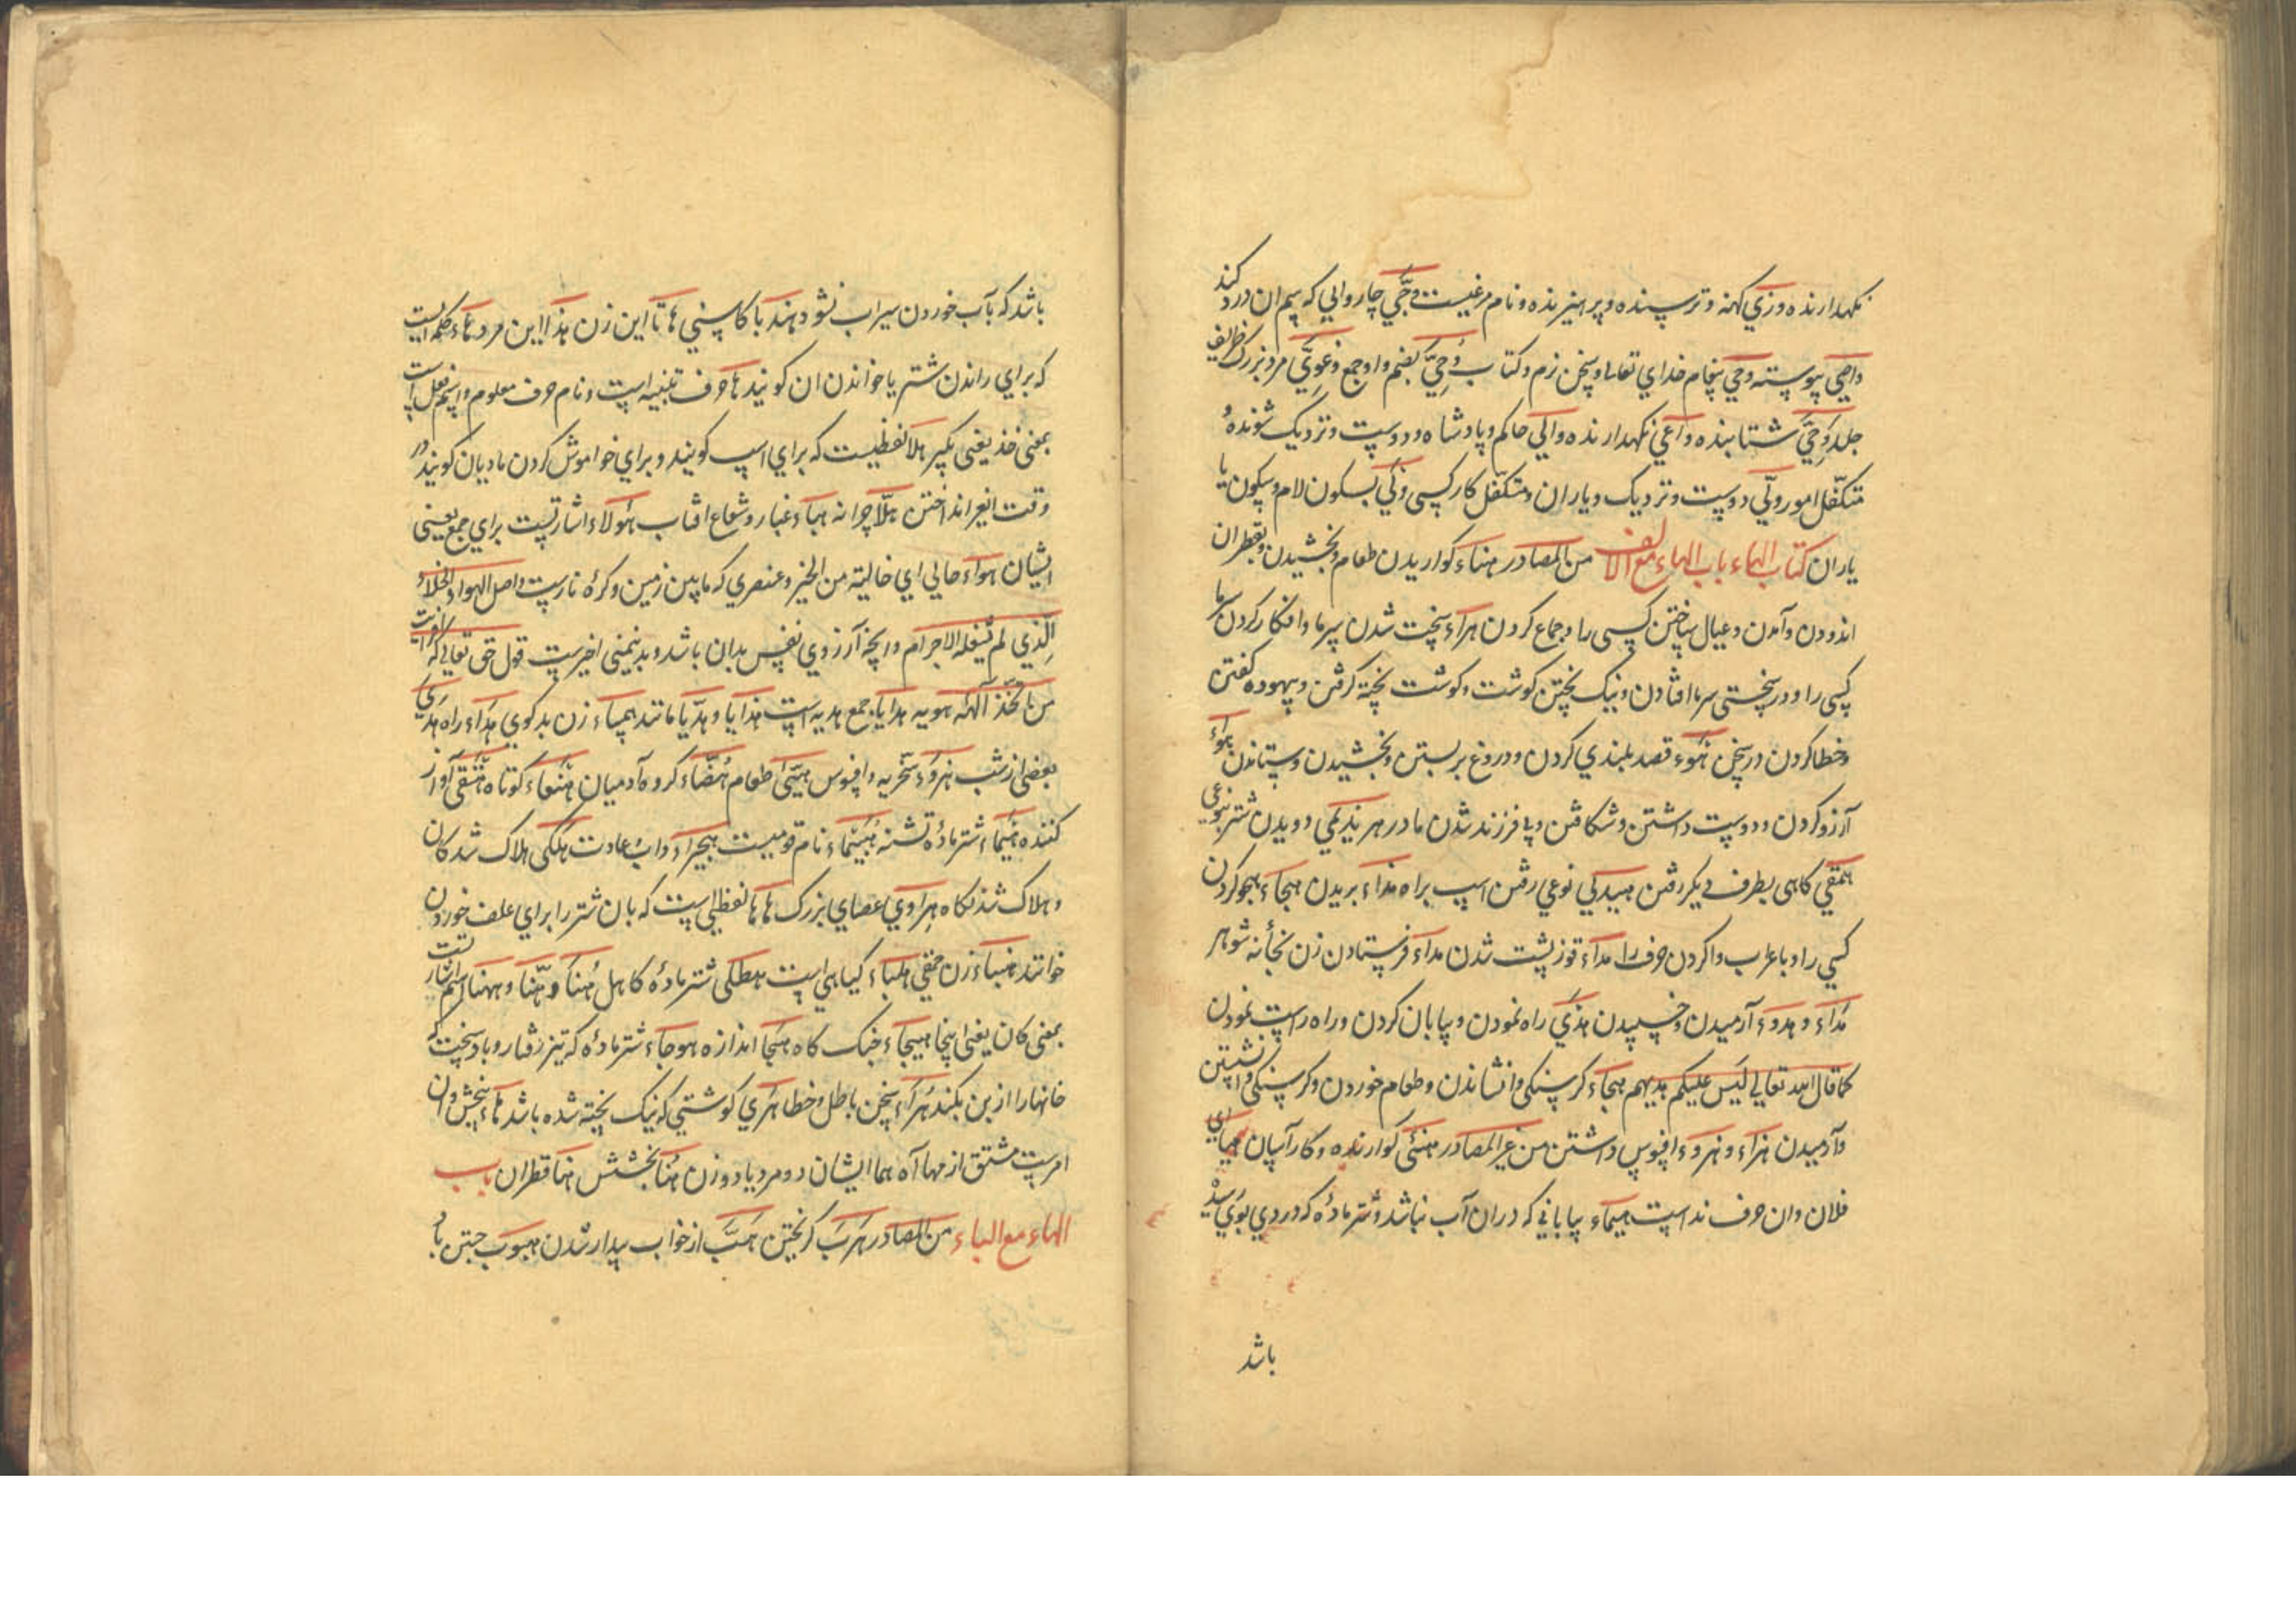 نکهدارنده وزي کهنه و ترسنده و پرهیزنده و نام مرغیست وجي چارواي که سم ان درد کند
واصي پیوسته وحي پیغام خداي تعالی و سخن نرم و کتاب وحي بضم واو جمع وغوي مرد بزرک ظریف
جلد وحي شتابنده واعي نکهدارنده والي حاکم و پادشاه و دوست و نزدیک شونده
متکفل امور ولي دوست و نزدیک و یاران و متکفل کار کسی ولي بسکون لام و سکون یا
یاران کتاب الهاء باب الهاء مع الالف من المصادر هناء کواریدن طعام و بخشیدن و بقطران
اندودن و آمدن و عیال ساختن کسی را و جماع کردن هراء سخت شدن سرما و افکار کردن سرما
کسی را و در سختی سرما افتادن و نیک پختن کوشت و کوشت پخته کرفتن و بیهوده کفتن
و خطا کردن در سخن هوء قصد بلندي کردن و دروغ بر بستن و بخشیدن و ستاندن هواء
آرزو کردن و دوست داشتن و شکافتن و بی فرزند شدن مادر هربذي دویدن شتر بنوعی
همقي کاهی بطرف دیکر رفتن هیدبي نوعي رفتن اسپ براه هذاء بریدن هجاء هجو کردن
کسي را و باعراب وا کردن حرف را هداء قوز پشت شدن هداء فرستادن زن بخانه شوهر
هداء و هدوء آرمیدن و خسپیدن هدي راه نمودن و بیابان کردن و راه راست نمودن
کما قال الله تعالي لیس علیکم هدیهم هجاء کرسنکی وا نشاندن و طعام خوردن و کرسنکی وا نشستن
و آرمیدن هزاء و هزوء افسوس داشتن من غیر المصادر هنئی کوارنده و کار آسان هیا اي
فلان وان حرف نداست هیماء بیابانی که دران آب نباشد و شتر ماده که دردي بوي رسد
باشد
باشد که بآب خوردن سیراب نشود هندبا کاسني هاتا این زن هذا این مرد هاء کلمه ایست
که براي راندن شتر یا خواندن ان کویند ها حرف تنبیه است و نام حرف معلوم و اسم فعل است
بمعنی خذ یعنی بکیر هلا لفظیست که براي اسپ کویند و براي خواموش کردن مادیان کویند در
وقت ایغر انداختن هلا چرا نه هباء غبار و شعاع افتاب هولاء اشارتست براي جمع یعنی
ایشان هواء خالي اي خالیة من الخیر و عنصري که مابین زمین و کره نارست و اصل الهواء الخلاء
الذي لم یشغله الاجرام و ریخه آرزوي نفس بدان باشد و بدینمعنی اخیرست قول حق تعالی که افرایت
من اتخذ الهه هویه هدایا جمع هدیه است هذایا و هذیا مانند همساء زن بد کوي هداء راه هدي
بعضی از شب هزوء سخریه و افسوس هیئی طعام هضاء کروه آدمیان هنعاء کوتاه هتفی آواز
کننده هیماء اشتر ماده تشنه هینماء نام قومیست هجیراء داب عادت هلکی هلاک شدکان
و هلاک شدنکاه هراوي عصاي بزرک هاها لفظی است که بان شتر را براي علف خوردن
خوانند هنباء زن حمقي هلباء کیاهی است هطلی شتر ماده کاهل هنا و هنا و ههنا اسم اشارتست
بمعنی کان یعنی اینجا هیجاء جنک کاه هجا اندازه هوجاء شتر ماده که تیز رفتار و باد سخت که
خانها را از بن بکند هراء سخن باطل و خطا هري کوشتي که نیک پخته شده باشد هاء ببخش وان
امرست مشتق از مهاآه هما ایشان دو مرد یا دو زن هنا بخشش هنا قطران باب
الهاء مع الباء من المصادر هرب کریختن هب از خواب بیدار شدن هبوب جستن باد